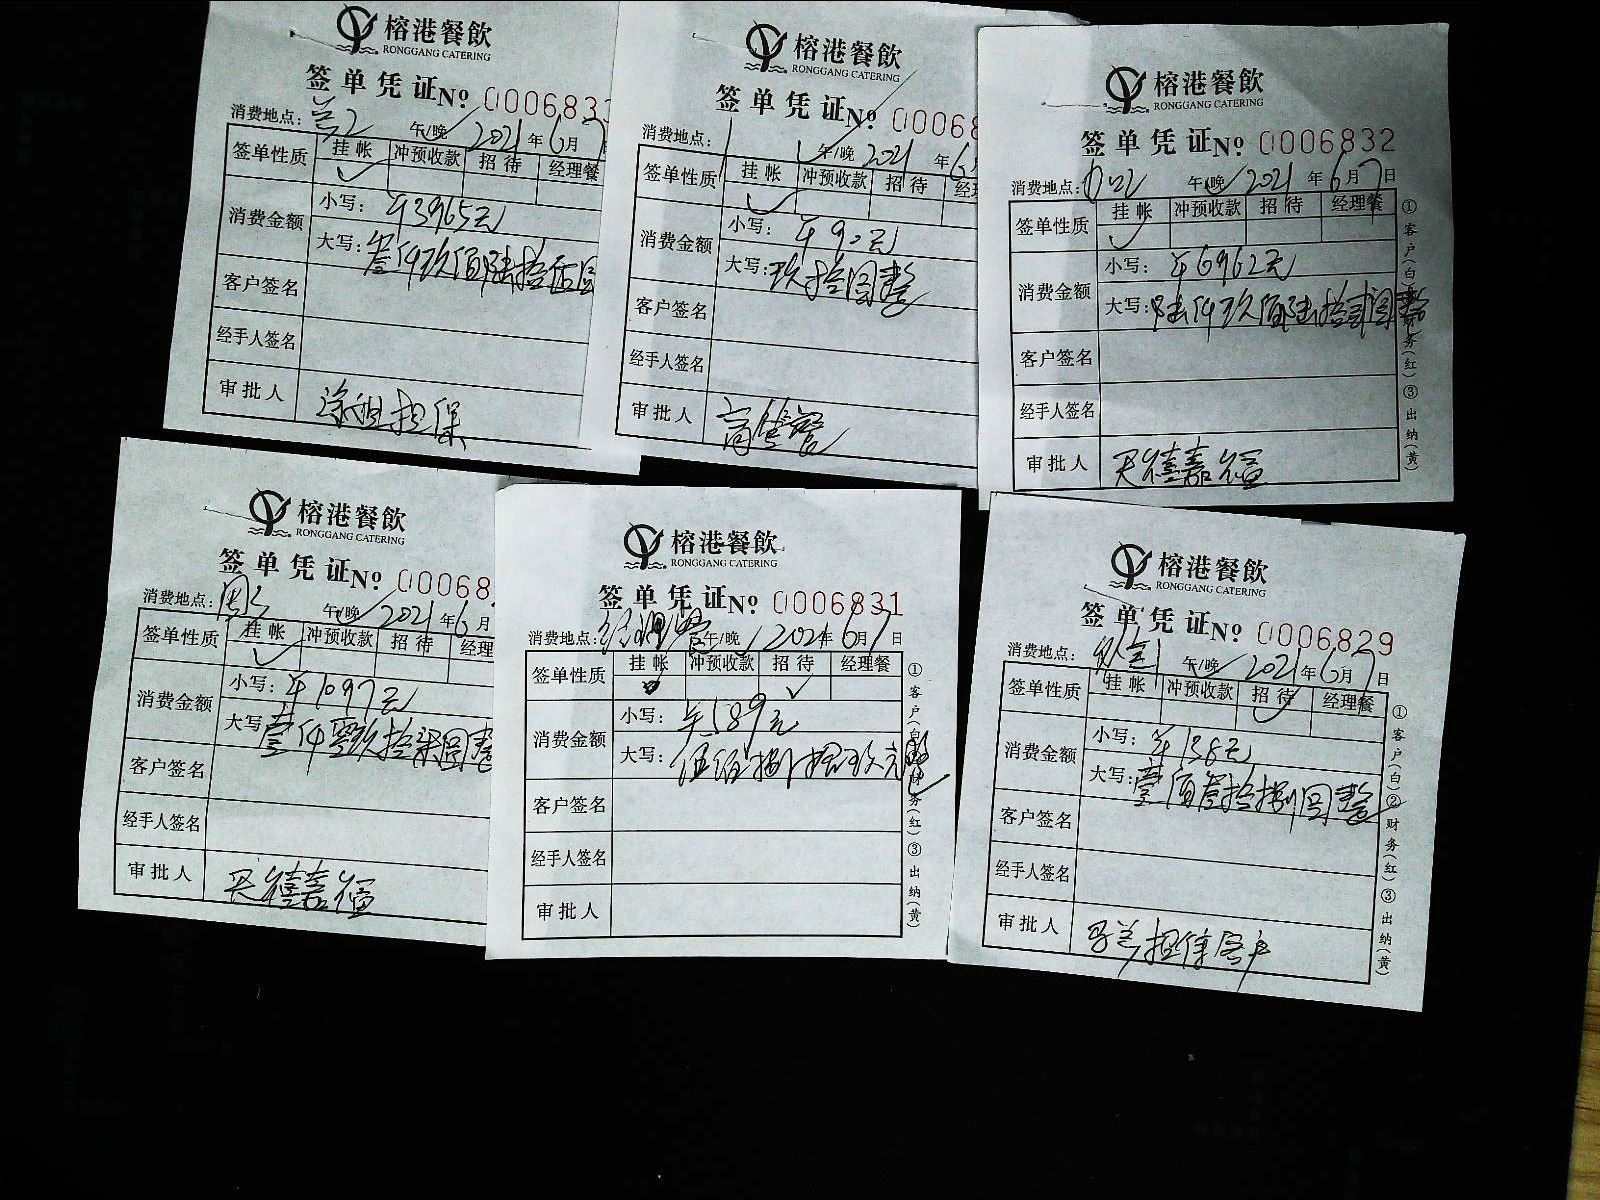 榕港餐飲
RONGGANG CATERING
签单凭证 № 000683
消费地点: 兰2 午/晚 2021年6月7
签单性质 挂帐 冲预收款 招待 经理餐
消费金额 小写: ¥3965元
大写: 叁仟玖佰陆拾伍圆
客户签名
经手人签名
审批人 担保
榕港餐飲
RONGGANG CATERING
签单凭证 № 00068
消费地点: 午/晚 2021年6
签单性质 挂帐 冲预收款 招待 经
消费金额 小写: ¥90元
大写: 玖拾圆整
客户签名
经手人签名
审批人 高管餐
榕港餐飲
RONGGANG CATERING
签单凭证 № 0006832
消费地点: 午/晚 2021年6月7日
签单性质 挂帐 冲预收款 招待 经理餐
消费金额 小写: ¥6962元
大写: 陆仟玖佰陆拾贰圆整
客户签名
经手人签名
审批人 天禧嘉福
①客户(白 财务(红)③出纳(黄)
榕港餐飲
RONGGANG CATERING
签单凭证 № 00068
消费地点: 午/晚 2021年6月
签单性质 挂帐 冲预收款 招待 经理
消费金额 小写: ¥1097元
大写 壹仟零玖拾柒圆整
客户签名
经手人签名
审批人 天禧嘉福
榕港餐飲
RONGGANG CATERING
签单凭证 № 0006831
消费地点: 经理餐 午/晚 2021年6月7日
签单性质 挂帐 冲预收款 招待 经理餐
消费金额 小写: ¥589元
大写: 伍佰捌拾玖元整
客户签名
经手人签名
审批人
①客户(白 财务(红)③出纳(黄)
榕港餐飲
RONGGANG CATERING
签单凭证 № 0006829
消费地点: 午/晚 2021年6月7日
签单性质 挂帐 冲预收款 招待 经理餐
消费金额 小写: ¥138元
大写: 壹佰叁拾捌圆整
客户签名
经手人签名
审批人 客户
①客户(白)②财务(红)③出纳(黄)